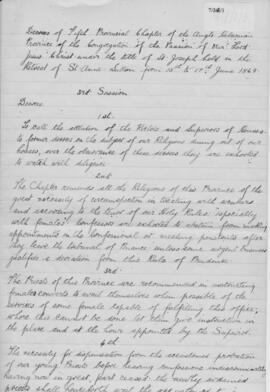 Decrees of Fifth Provincial Chapter of the Anglo Hibernian
Province of the Congregation of the Passion of Our Lord
Jesus Christ under the title of St. Joseph held in the
Retreat of St. Anne Sutton from 10th to 17th June 1869.
3rd Session
Decrees
1st
To call the attention of the Rectors and Superiors of Houses
to former decrees on the subject of our Religious dining out of our
houses, over the observance of these decrees they are exhorted
to watch with diligence
2nd
The Chapter reminds all the Religious of this Province of the
great necessity of circumspection in treating with seculars
and according to the tenor of our Holy Rules especially
with females. Confessors are exhorted to abstain from making
appointments in the Confessional or meeting penitents after
they leave the tribunal of Penance unless some urgent business
justifies a deviation from this Rule of Prudence
3rd
The Priests of this Province are recommended in instructing
female converts to avail themselves when possible of the
services of some female capable of fulfilling this office;
when this cannot be done let them give instruction in
the place and at the hour appointed by the Superior.
4th
The necessity for dispensation from the accustomed probation
of our young Priests before hearing confessions
having now in great part ceased the newly ordained
priests shall henceforth wait the